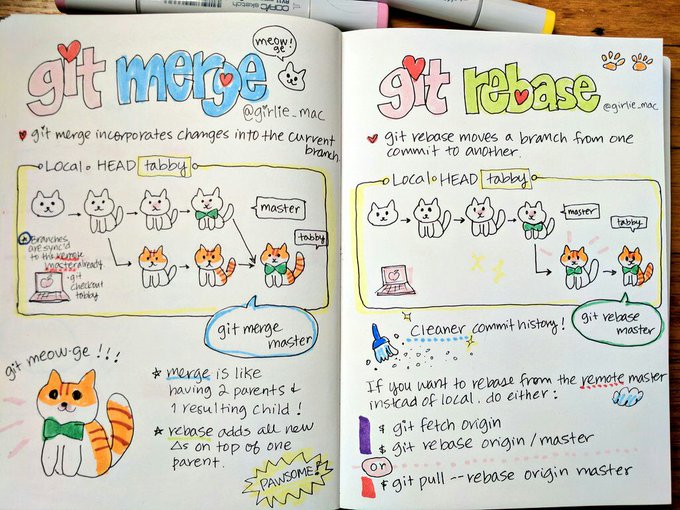 copic sketch
git merge
meow!
ge
@girlie_mac
git merge incorporates changes into the current
branch
Local HEAD tabby
master
tabby
Branches
are sync'd
to the remote
master already.
git
checkout
tabby
git merge
master
git meow-ge !!!
merge is like
having 2 parents &
1 resulting child!
rebase adds all new
Δs on top of one
parent.
PAWSOME!
git rebase
@girlie_mac
git rebase moves a branch from one
commit to another.
Local HEAD tabby
master
tabby
git rebase
master
Cleaner commit history!
If you want to rebase from the remote master
instead of local, do either:
$ git fetch origin
$ git rebase origin/master
or
$ git pull --rebase origin master